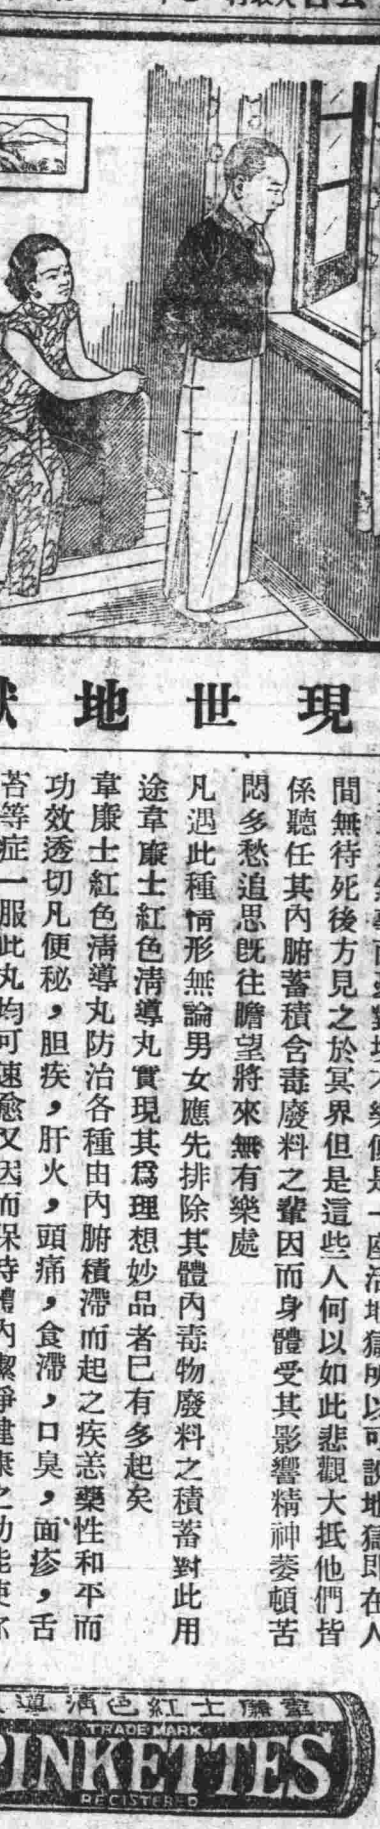 現世地獄
間無待死後方見之於冥界但是這些人何以如此悲觀大抵他們皆
係聽任其內腑蓄積含毒廢料之輩因而身體受其影響精神萎頓苦
悶多愁追思既往瞻望將來無有樂處
凡遇此種情形無論男女應先排除其體內毒物廢料之積蓄對此用
途韋廉士紅色清導丸實現其爲理想妙品者已有多起矣
韋廉士紅色清導丸防治各種由內腑積滯而起之疾恙藥性和平而
功效透切凡便秘，胆疾，肝火，頭痛，食滯，口臭，面疹，舌
苔等症一服此丸均可速愈又因而保持體內潔淨健康之功能使你
韋廉士紅色清導
TRADE MARK
PINKETTES
REGISTERED